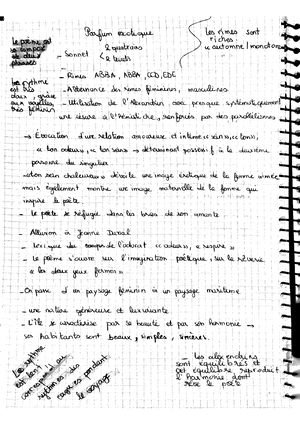 Parfum exotique
Le poème est
se compose
de deux
phrases
- Sonnet
2 quatrains
2 tercets
Les rimes sont
riches :
automne / monotone
Le rythme
est très
doux, grâce
aux voyelles
très féminin
- Rimes ABBA, ABBA, CCD, EDE
- Alternance des rimes féminines, masculines
- Utilisation de l'Alexandrin avec presque systématiquement
une césure à l'hémistiche, renforcés par des parallélismes
→ Évocation d'une relation amoureuse et intime « sein », « ton »,
« ton odeur », « ton sein » → déterminant possessif à la deuxième
personne du singulier
« ton sein chaleureux » dévoile une image érotique de la femme aimée
mais également montre une image maternelle de la femme qui
inspire le poète.
- Le poète se réfugie dans les bras de son amante
- Allusion à Jeanne Duval
- Lexique du champ de l'odorat « odeur », « respire »
- Le poème s'ouvre sur l'imagination poétique, sur la rêverie
« les deux yeux fermés »
- On passe d'un paysage féminin à un paysage maritime
- une nature généreuse et luxuriante
- L'île se caractérise par sa beauté et par son harmonie →
ses habitants sont beaux, simples, sincères.
Le rythme
est lent
correspond au
rythme des
pendant
le voyage
- Les alexandrins
sont équilibrés et
cet équilibre reproduit
l'harmonie dont
rêve le poète